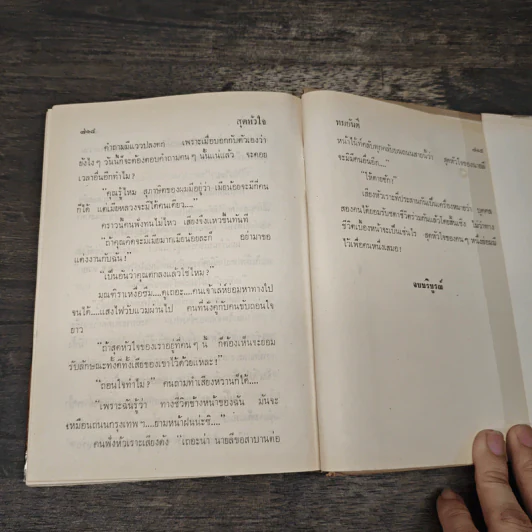 ๘๒๔
สุดหัวใจ
คำถามมีแววปลงตก เพราะเมื่อบอกกับตัวเองว่า
ยังไง ๆ วันนี้ก็จะต้องตอบคำถามคน ๆ นั้นแน่แล้ว จะคอย
เวลาอื่นอีกทำไม?
“คุณรู้ไหม สุภาษิตของเรามีอยู่ว่า เมียน้อยจะมีกี่คน
ก็ได้ แต่เมียหลวงจะมีได้คนเดียว....”
คราวนี้คนฟังทนไม่ไหว เสียงจึงแหวขึ้นทันที
“ถ้าคุณคิดจะมีเมียมากเมียน้อยละก็ อย่ามาขอ
แต่งงานกับฉัน!”
“เป็นอันว่าคุณตกลงแล้วใช่ไหม?”
มุณฑิราเหงื่อซึม....ดูเถอะ....คนเจ้าเล่ห์ย่อมหาทางไป
จนได้....แสงไฟวับแวมผ่านไป คนที่นั่งคู่กับคนขับถอนใจ
ยาว
“ถ้าสุดหัวใจของเราอยู่ที่คน ๆ นี้ ก็ต้องเห็นจะยอม
รับลักษณะทั้งดีทั้งเสียของเขาไว้ด้วยแหละ!”
“ถอนใจทำไม?” คนถามทำเสียงหวานก็ได้....
“เพราะฉันรู้ว่า ทางชีวิตข้างหน้าของฉัน มันจะ
เหมือนถนนกรุงเทพ ฯ....ยามหน้าฝนน่ะซิ....”
คนฟังหัวเราะเสียงดัง “เถอะน่า นายสีขอสาบานต่อ
ทมยันตี
๘๒๕
จะมีมีคนอื่นอีก....”
“ให้ตายซิ!”
เสียงหัวเราะที่ประสานกันเป็นเครื่องหมายว่า บุคคล
สองคนได้ยอมรับชะตาชีวิตร่วมกันแล้วโดยสิ้นเชิง ไม่ว่าทาง
ชีวิตเบื้องหน้าจะเป็นเช่นไร สุดหัวใจของคน ๆ หนึ่งย่อมมี
ไว้เพื่อคนหนึ่งเสมอ!
จบบริบูรณ์